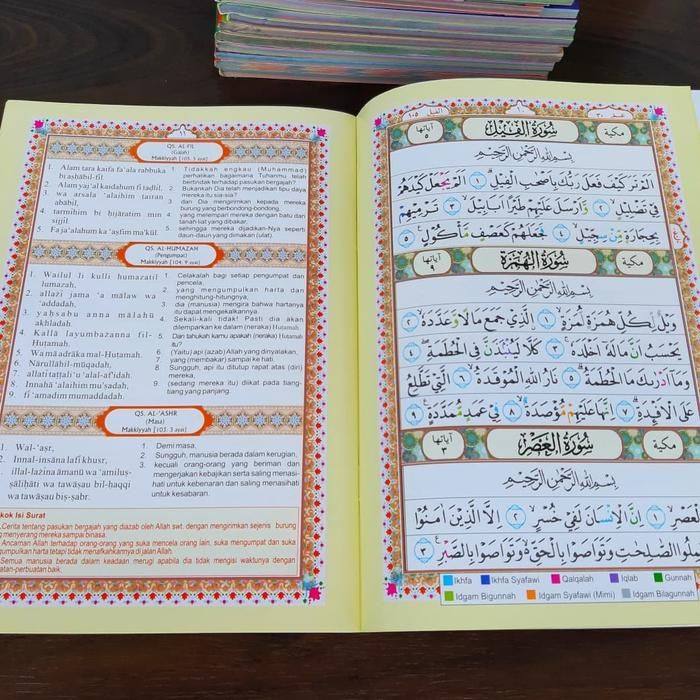 ١١
QS. AL-FIL
(Gajah)
Makkiyyah [105: 5 ayat]
1. Alam tara kaifa fa'ala rabbuka bi aṣḥābil-fīl.
2. Alam yaj'al kaidahum fī taḍlīl,
3. wa arsala 'alaihim ṭairan abābīl,
4. tarmīhim bi ḥijāratim min sijjīl
5. Faja'alahum ka'aṣfim ma'kūl.
1. Tidakkah engkau (Muhammad) perhatikan bagaimana Tuhanmu telah bertindak terhadap pasukan bergajah?
2. Bukankah Dia telah menjadikan tipu daya mereka itu sia-sia?
3. dan Dia mengirimkan kepada mereka burung yang berbondong-bondong,
4. yang melempari mereka dengan batu dari tanah liat yang dibakar,
5. sehingga mereka dijadikan-Nya seperti daun-daun yang dimakan (ulat).
QS. AL-HUMAZAH
(Pengumpat)
Makkiyyah [104: 9 ayat]
1. Wailul li kulli humazatil lumazah,
2. allażī jama 'a mālaw wa 'addadah,
3. yaḥsabu anna mālahū akhladah.
4. Kallā layumbażanna fil-Ḥuṭamah.
5. Wa mā adrāka mal-Ḥuṭamah.
6. Nārullāhil-mūqadah,
7. allatī taṭṭali'u 'alal-af'idah.
8. Innahā 'alaihim mu'ṣadah,
9. fī 'amadim mumaddadah.
1. Celakalah bagi setiap pengumpat dan pencela,
2. yang mengumpulkan harta dan menghitung-hitungnya,
3. dia (manusia) mengira bahwa hartanya itu dapat mengekalkannya.
4. Sekali-kali tidak! Pasti dia akan dilemparkan ke dalam (neraka) Hutamah.
5. Dan tahukah kamu apakah (neraka) Hutamah itu?
6. (Yaitu) api (azab) Allah yang dinyalakan,
7. yang (membakar) sampai ke hati.
8. Sungguh, api itu ditutup rapat atas (diri) mereka,
9. (sedang mereka itu) diikat pada tiang-tiang yang panjang.
QS. AL-'ASHR
(Masa)
Makkiyyah [103: 3 ayat]
1. Wal-'aṣr,
2. Innal-insāna lafī khusr,
3. illal-lażīna āmanū wa 'amiluṣ-ṣāliḥāti wa tawāṣau bil-ḥaqqi wa tawāṣau biṣ-ṣabr.
1. Demi masa,
2. Sungguh, manusia berada dalam kerugian,
3. kecuali orang-orang yang beriman dan mengerjakan kebajikan serta saling menasihati untuk kebenaran dan saling menasihati untuk kesabaran.
kok Isi Surat
Cerita tentang pasukan bergajah yang diazab oleh Allah swt. dengan mengirimkan sejenis burung
g menyerang mereka sampai binasa.
Ancaman Allah terhadap orang-orang yang suka mencela orang lain, suka mengumpat dan suka
gumpulkan harta tetapi tidak menafkahkannya di jalan Allah.
Semua manusia berada dalam keadaan merugi apabila dia tidak mengisi waktunya dengan
atan-perbuatan baik.
الفيل ١٠٥
عم ٣٠
آياتها ٥
سُورَةُ الْفِيْلِ
مكية
بِسْمِ اللهِ الرَّحْمٰنِ الرَّحِيْمِ
اَلَمْ تَرَ كَيْفَ فَعَلَ رَبُّكَ بِاَصْحٰبِ الْفِيْلِ ١ اَلَمْ يَجْعَلْ كَيْدَهُمْ
فِيْ تَضْلِيْلٍ ٢ وَّاَرْسَلَ عَلَيْهِمْ طَيْرًا اَبَابِيْلَ ٣ تَرْمِيْهِمْ
بِحِجَارَةٍ مِّنْ سِجِّيْلٍ ٤ فَجَعَلَهُمْ كَعَصْفٍ مَّأْكُوْلٍ ٥
آياتها ٩
سُورَةُ الْهُمَزَةِ
مكية
بِسْمِ اللهِ الرَّحْمٰنِ الرَّحِيْمِ
وَيْلٌ لِّكُلِّ هُمَزَةٍ لُّمَزَةٍ ١ الَّذِيْ جَمَعَ مَالًا وَّعَدَّدَهٗ ٢
يَحْسَبُ اَنَّ مَالَهٗٓ اَخْلَدَهٗ ٣ كَلَّا لَيُنْۢبَذَنَّ فِى الْحُطَمَةِ ٤
وَمَآ اَدْرٰىكَ مَا الْحُطَمَةُ ٥ نَارُ اللهِ الْمُوْقَدَةُ ٦ الَّتِيْ تَطَّلِعُ
عَلَى الْاَفْـِٕدَةِ ٧ اِنَّهَا عَلَيْهِمْ مُّؤْصَدَةٌ ٨ فِيْ عَمَدٍ مُّمَدَّدَةٍ ٩
آياتها ٣
سُورَةُ الْعَصْرِ
مكية
بِسْمِ اللهِ الرَّحْمٰنِ الرَّحِيْمِ
الْعَصْرِ ١ اِنَّ الْاِنْسَانَ لَفِيْ خُسْرٍ ٢ اِلَّا الَّذِيْنَ اٰمَنُوْا
عَمِلُوا الصّٰلِحٰتِ وَتَوَاصَوْا بِالْحَقِّ وَتَوَاصَوْا بِالصَّبْرِ ٣
Ikhfa Ikhfa Syafawi Qalqalah Iqlab Gunnah
Idgam Bigunnah Idgam Syafawi (Mimi) Idgam Bilagunnah